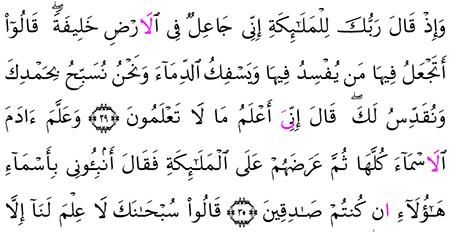 وَإِذْ قَالَ رَبُّكَ لِلْمَلَٰٓئِكَةِ إِنِّى جَاعِلٌ فِى اِ۬لَارْضِ خَلِيفَةً ۖ قَالُوٓا۟
أَتَجْعَلُ فِيهَا مَن يُفْسِدُ فِيهَا وَيَسْفِكُ الدِّمَآءَ وَنَحْنُ نُسَبِّحُ بِحَمْدِكَ
وَنُقَدِّسُ لَكَ ۖ قَالَ إِنِّىَ أَعْلَمُ مَا لَا تَعْلَمُونَ ﴿٢٩﴾ وَعَلَّمَ ءَادَمَ
اَ۬لَاسْمَآءَ كُلَّهَا ثُمَّ عَرَضَهُمْ عَلَى الْمَلَٰٓئِكَةِ فَقَالَ أَنۢبِـُٔونِى بِأَسْمَآءِ
هَٰٓؤُلَآءِ ان كُنتُمْ صَٰدِقِينَ ﴿٣٠﴾ قَالُوا۟ سُبْحَٰنَكَ لَا عِلْمَ لَنَآ إِلَّا